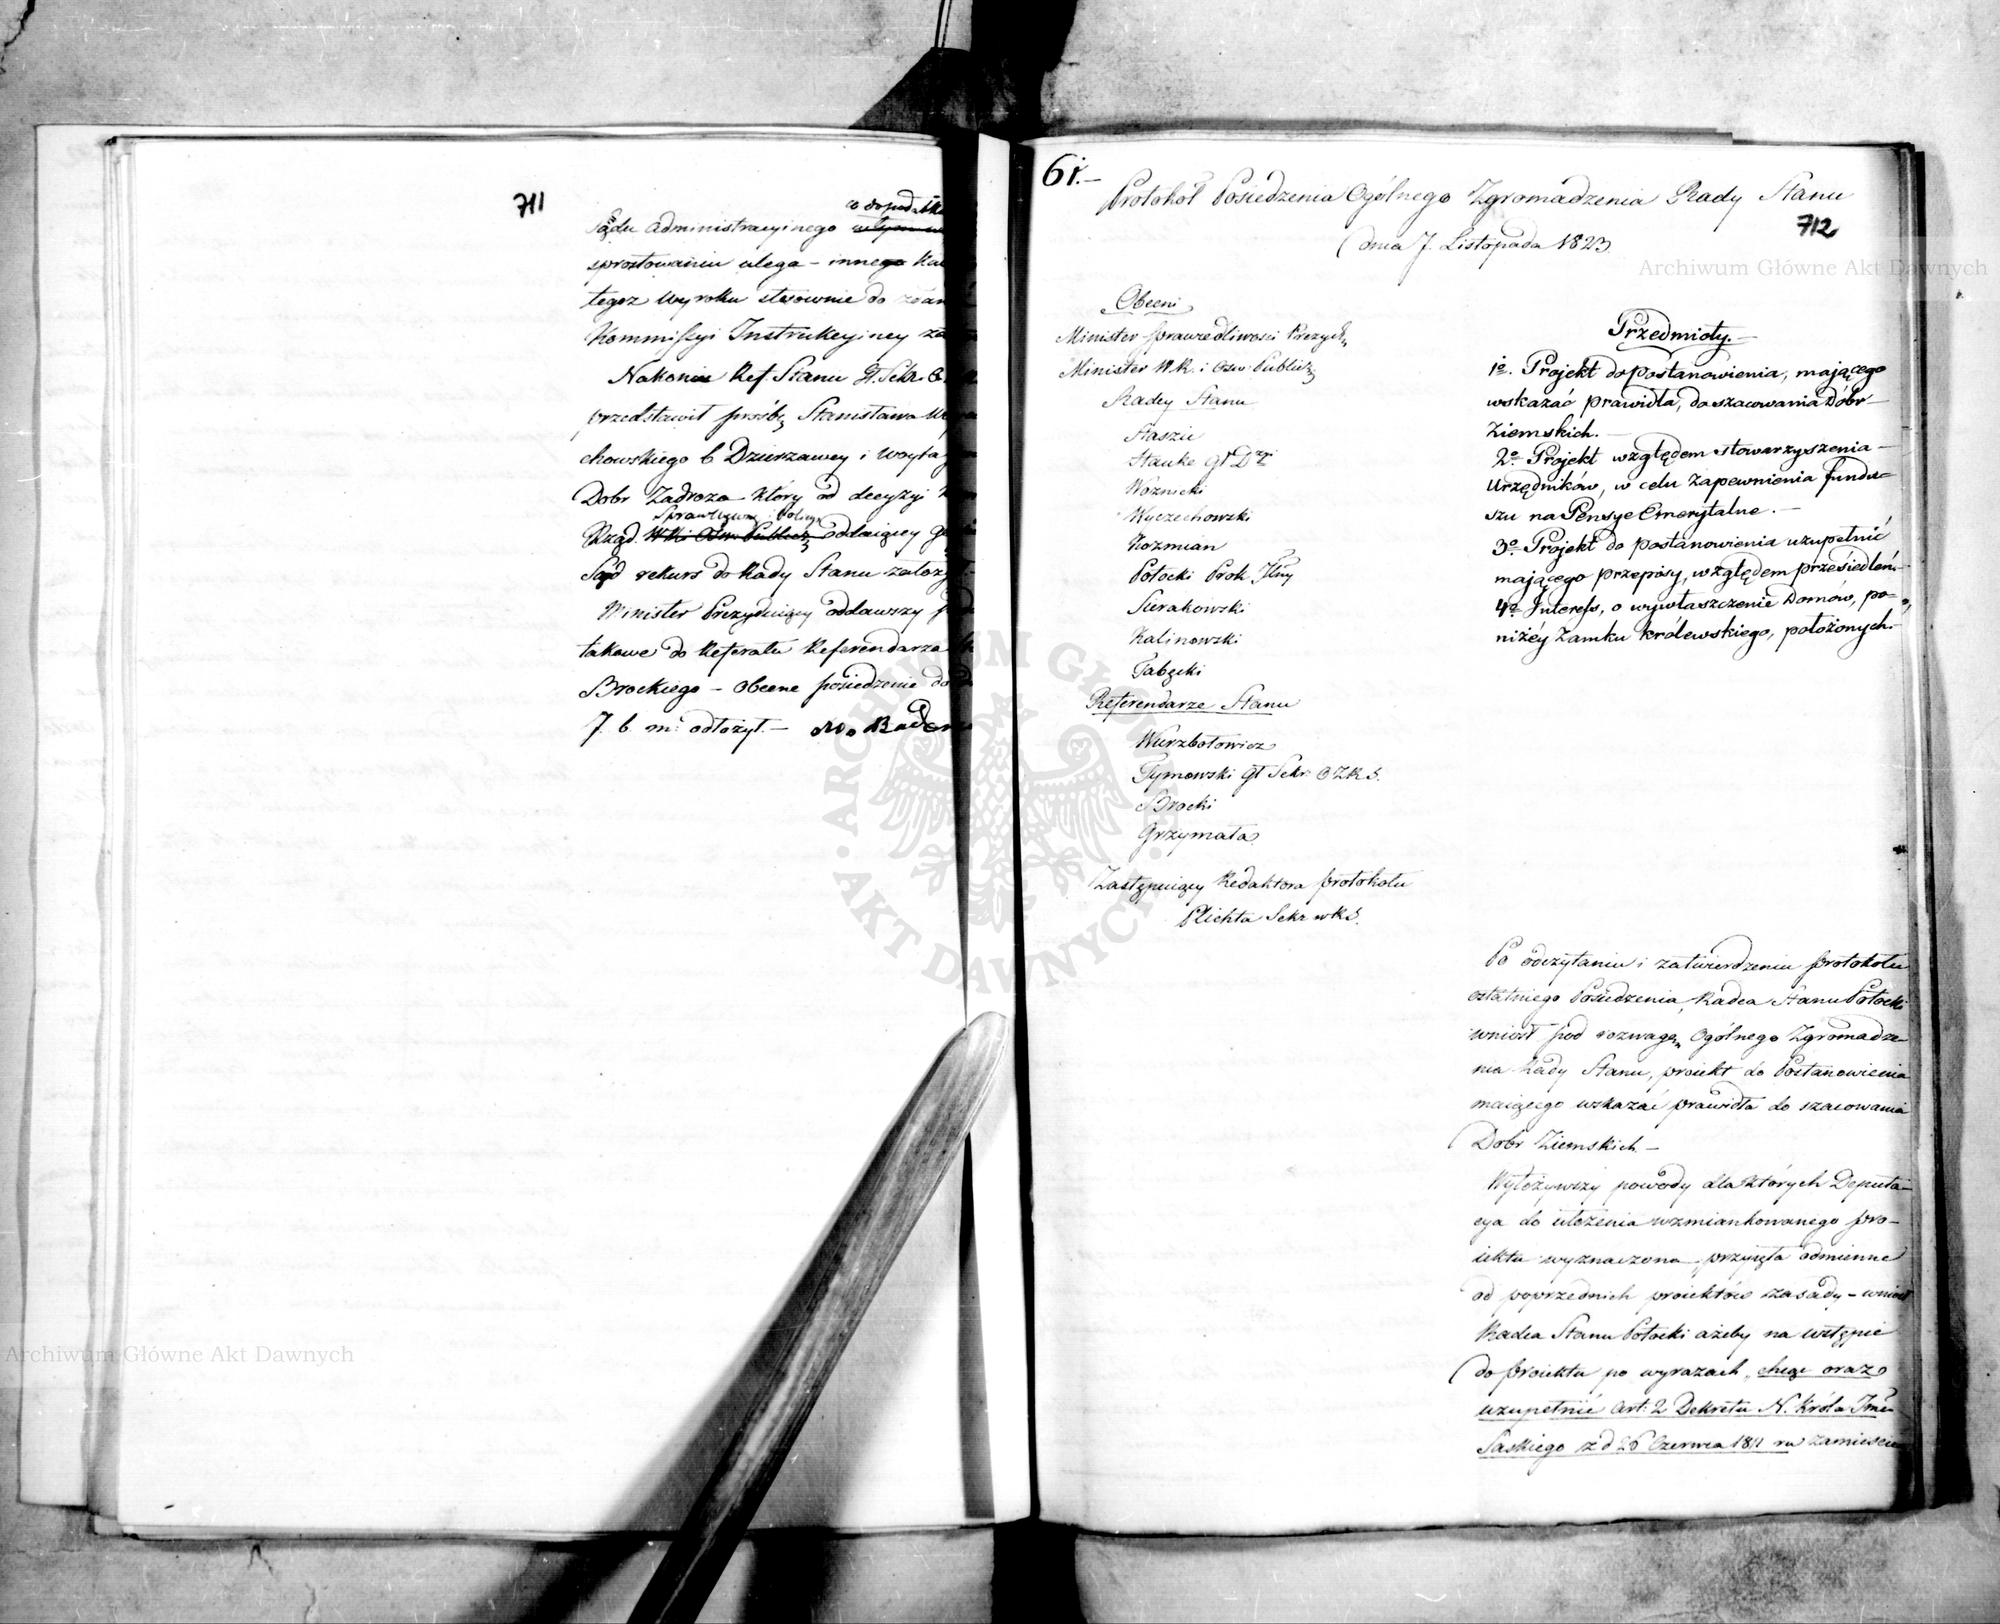 711
w dopadk
Sądu administracyinego
sprostowaniu ulega - innego
tegoż Wyroku stosownie do
Kommissyi Instrukcyiney za
Nakoniec Ref. Stanu Gł. Sekr.
przedstawił prośbę Stanisława
chowskiego b Dzierżawcy i Woyta
Dobr Zadroża który od decyzyi
Sprawiedliw: i Policyi
Rząd. W.R. i Ośw: Publicz oddaiącey
Sąd rekurs do Rady Stanu założył
Minister Prezyduiący oddawszy
takowe do Referatu Referendarza
Brockiego - obecne posiedzenie do
7. b. m. odłożył. - M. Baden
61.-
Protokół Posiedzenia Ogólnego Zgromadzenia Rady Stanu
712
dnia 7. Listopada 1823
Obecni
Minister Sprawiedliwości Prezyd:
Minister W.R. i Ośw: Publicz
Radcy Stanu
Staszic
Hauke Gł Dyr
Woźnicki
Wyczechowski
Kozmian
Potocki Prok. Jlny
Sierakowski
Kalinowski
Tabęcki
Referendarze Stanu
Wierzbołowicz
Tymowski Gł Sekr. O.Z.R.S.
Brocki
Grzymała
Zastępuiący Redaktora protokołu
Plichta Sekr w R.S.
Przedmioty.-
1o. Projekt do postanowienia, mającego
wskazać prawidła, do szacowania Dóbr
Ziemskich.-
2o. Projekt względem stowarzyszenia
Urzędników, w celu zapewnienia fundu-
szu na Pensye Emerytalne.-
3o. Projekt do postanowienia uzupełnić
mającego przepisy, względem przesiedleń.
4o. Interess, o wywłaszczenie Domów, po-
niżéy Zamku królewskiego, położonych.-
Po odczytaniu i zatwierdzeniu protokołu
ostatniego Posiedzenia, Radca Stanu Potocki
wniósł pod rozwagę Ogólnego Zgromadze-
nia Rady Stanu, proiekt do Postanowienia
maiącego wskazać prawidła do szacowania
Dobr Ziemskich -
Wyłożywszy powody dla których Deputa-
cya do ułożenia wzmiankowanego pro-
iektu wyznaczona przyięła odmienne
od poprzednich proiektów zasady - wniósł
Radca Stanu Potocki ażeby na wstępie
do proiektu po wyrazach „chcąc oraz
uzupełnić Art: 2 Dekretu N. Króla Jmci
Saskiego z d 26 Czerwca 1811 ru zamieścić
Archiwum Główne Akt Dawnych
Archiwum Główne Akt Dawnych
ARCHIWUM GŁÓWNE AKT DAWNYCH